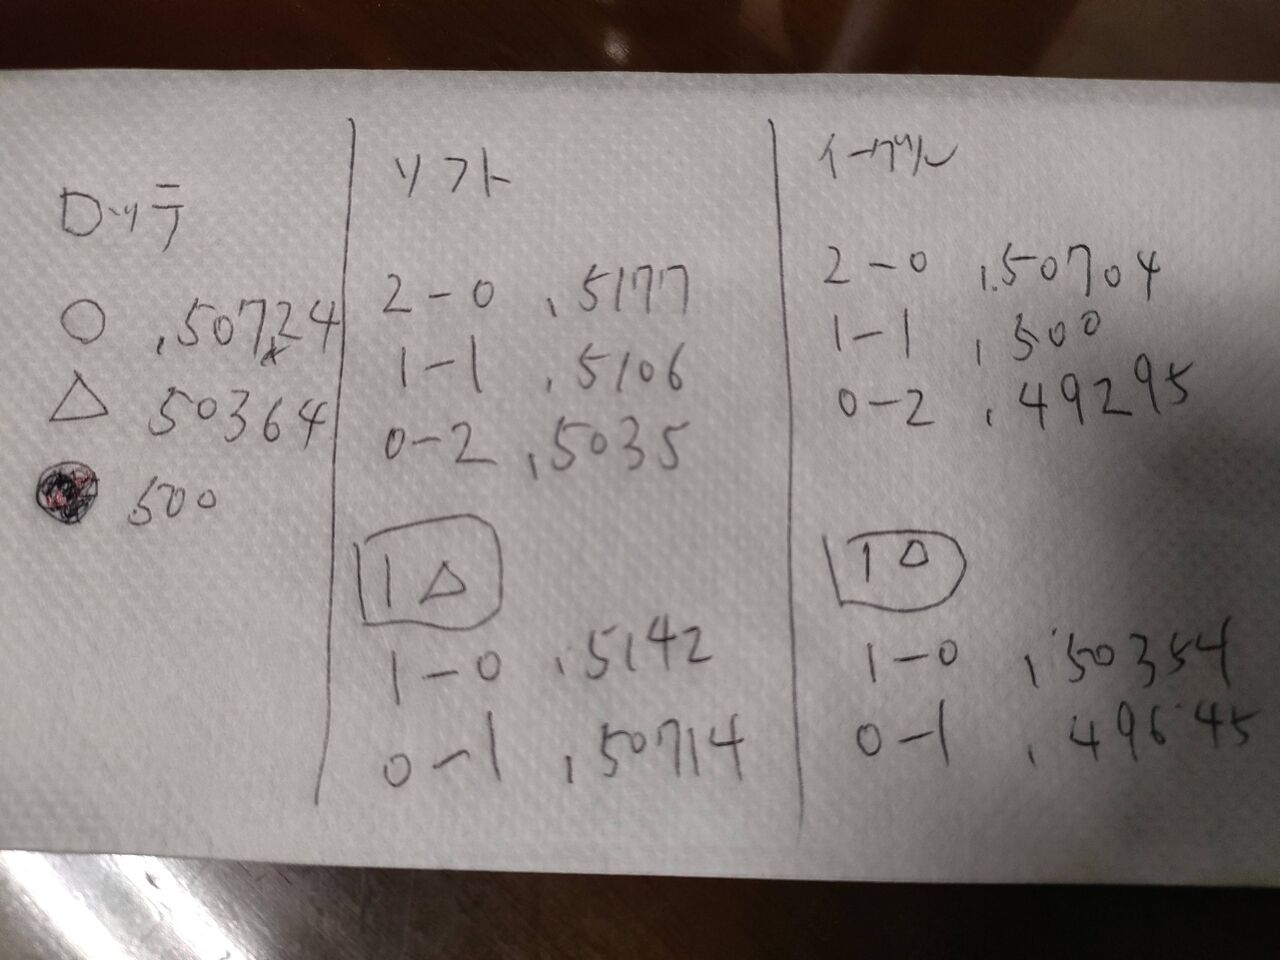 ロッテ
○ .50724
△ 50364
● 500
ソフト
2-0 .5177
1-1 .5106
0-2 .5035
1△
1-0 .5142
0-1 .50714
イーグル
2-0 .50704
1-1 .500
0-2 .49295
1△
1-0 .50354
0-1 .49645